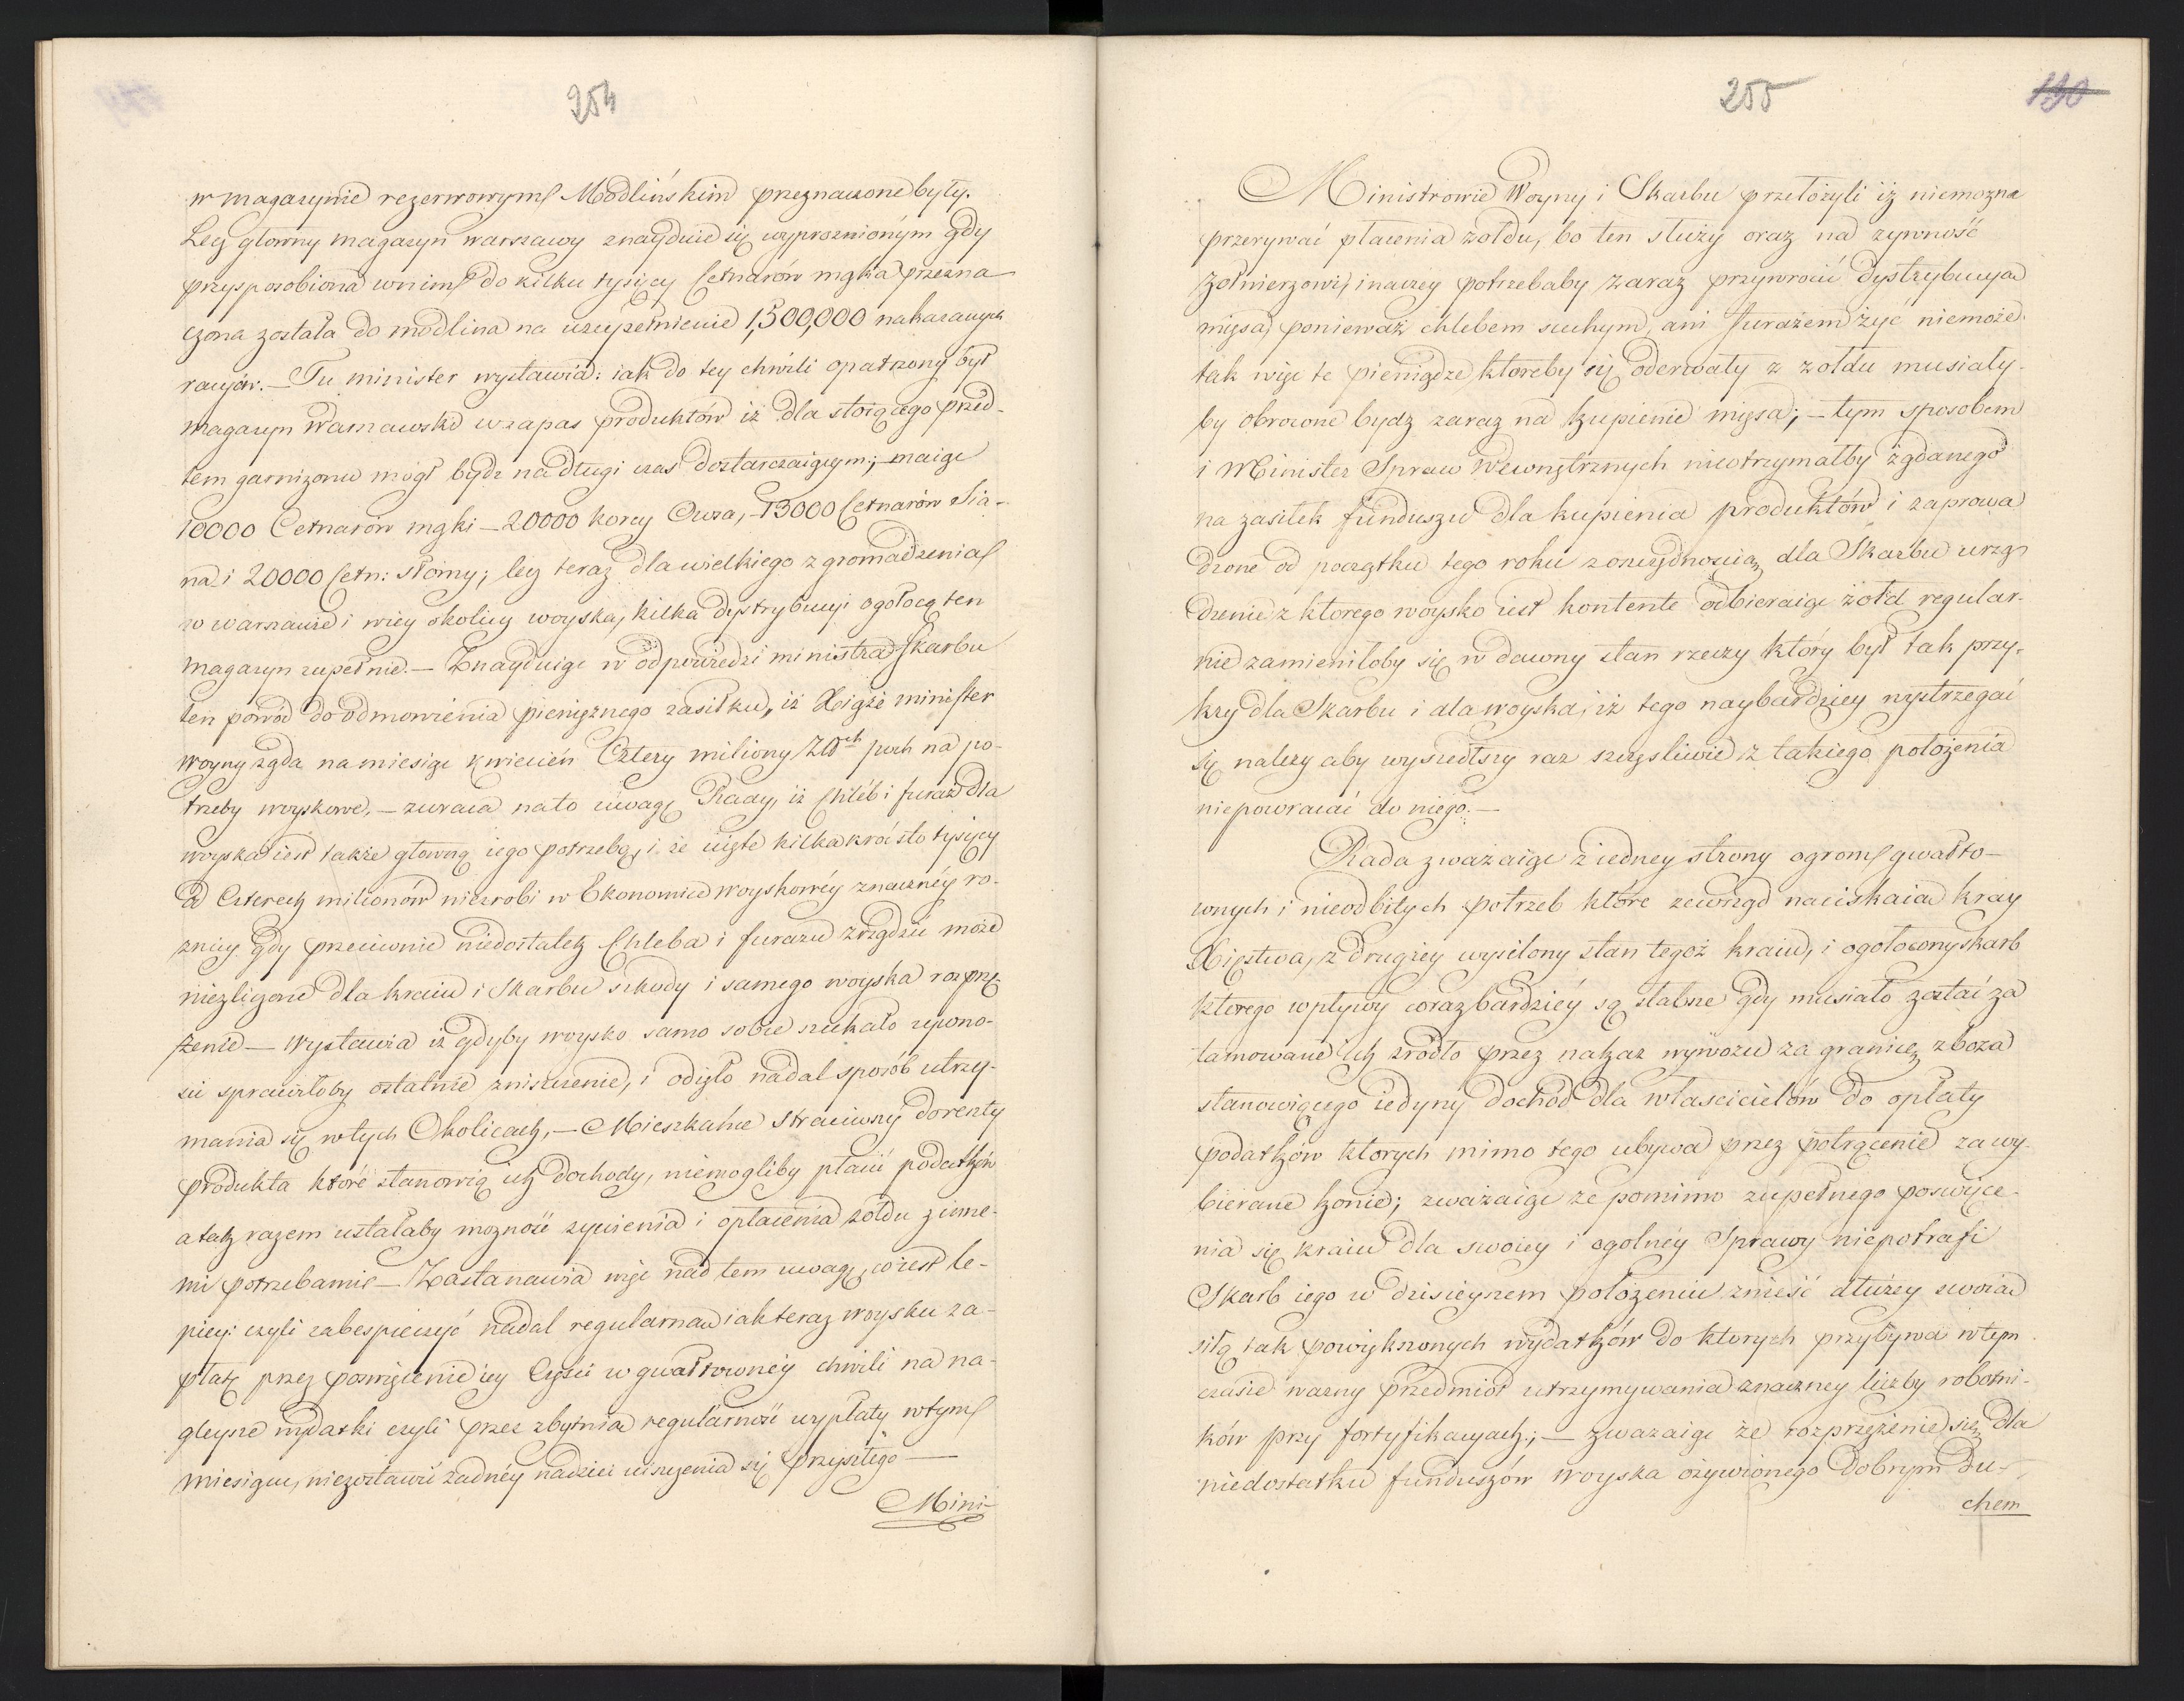 254
w magazynie rezerwowym Modlińskim przeznaczone były.
Lecz głowny magazyn warszawy znayduie się wyprosznionym gdy
przysposobiona w nim do kilku tysięcy Cetnarów mąka przezna
czona została do modlina na uzupełnienie 1,500,000 nakazanych
racyów. — Tu minister wystawia: iak do tey chwili opatrzony był
magazyn Warszawski w zapas produktów iż dla stoiącego przed-
tem garnizonu mógł bydz na długi czas dostarczaiącym; maiąc
10000 Cetnarów mąki — 20000 korcy Owsa, — 13000 Cetnarów Sia-
na i 20000 Cetn: słomy; lecz teraz dla wielkiego zgromadzenia
w warszawie i wiey okolicy woyska, kilka dystrybucyi ogołocą ten
magazyn zupełnie. — Znayduiąc w odpowiedzi ministra Skarbu
ten powód do odmowienia pieniężnego zasiłku, iż Xiąże minister
woyny żąda na miesiąc kwiecień Cztery miliony Złch pch na po-
trzeby woyskowe, — zwraca na to uwagę Rady, iż Chléb i furaż dla
woyska iest także głowną iego potrzebą, i że uięte kilkakroć sto tysięcy
od Czterech milionów niezrobi w Ekonomice woyskowéy znacznéy ro-
znicy. gdy przeciwnie niedostatek Chleba i furazu zrządzić może
niezliczone dla kraiu i Skarbu szkody i samego woyska rozprzę-
żenie — wystawia iż gdyby woysko samo sobie szukało zywno-
sci sprawiłoby ostatnie zniszczenie, i odięło nadal sposób utrzy-
mania się w tych Okolicach, — Mieszkańce straciwszy do reszty
produkta które stanowią ich dochody, niemogliby płacić podatków
a tak razem ustałaby moznosć zywienia i opłacenia zołdu z inne-
mi potrzebami — Zastanawia więc nad tem uwagę, co iest le-
piey: czyli zabespieczyć nadal regularna iak teraz woysku za-
płatę przez poswięcenie iey Części w gwałtowney chwili na na-
gleysze wydatki czyli przez zbytnia regularność wypłaty w tym
miesiącu, niezostawić żadnéy nadziei uiszczenia się przyszłego —
Mini-
255
190
Ministrowie Woyny i Skarbu przełożyli iż niemozna
przerywać płacenia zołdu, bo ten służy oraz na zywność
żołnierzowi, inaczey potrzebaby zaraz przywrocić dystrybucya
mięsa, ponieważ chlebem suchym, ani furażem żyć niemoże.
tak więc te pieniądze ktoreby się oderwały z zołdu musiały-
by obrocone bydz zaraz na kupienie mięsa; — tym sposobem
i Minister Spraw Wewnętrznych nieotrzymałby żądanego
na zasiłek funduszu dla kupienia produktów i zaprowa
dzone od początku tego roku z oszczędnoscią dla Skarbu urzą
dzenie z ktorego woysko iest kontente odbieraiąc żołd regular-
nie zamieniłoby się w dawny stan rzeczy który był tak przy-
kry dla Skarbu i dla woyska, iż tego naybardziey wystrzegać
się nalezy aby wyszedłszy raz szczęsliwie z takiego położenia
niepowracać do niego. —
Rada zważaiąc z iedney strony ogrom gwałto-
wnych i nieodbitych potrzeb które zewsząd naciskaia kray
Xięstwa, z drugiey wysilony stan tegoż kraiu, i ogołocony skarb
ktorego wpływy coraz bardziéy są słabsze gdy musiało zostać za
tamowane ich zrodło przez nakaz wywozu za granicę zboza
stanowiącego iedyny dochod dla własciicielów do opłaty
podatków ktorych mimo tego ubywa przez potrącenie za wy-
bierane konie; zważaiąc ze pomimo zupełnego poswięce-
nia się kraiu dla swoiey i ogolnéy Sprawy niepotrafi
Skarb iego w dzisieyszem położeniu znieść dłużey swoia
siłą tak powiększonych wydatków do ktorych przybywa w tym
czasie wazny przedmiot utrzymywania znaczney liczby robotni-
ków przy fortyfikacyach; — zwazaiąc że rozprzężenie się dla
niedostatku funduszów woyska ożywionego dobrym du-
chem